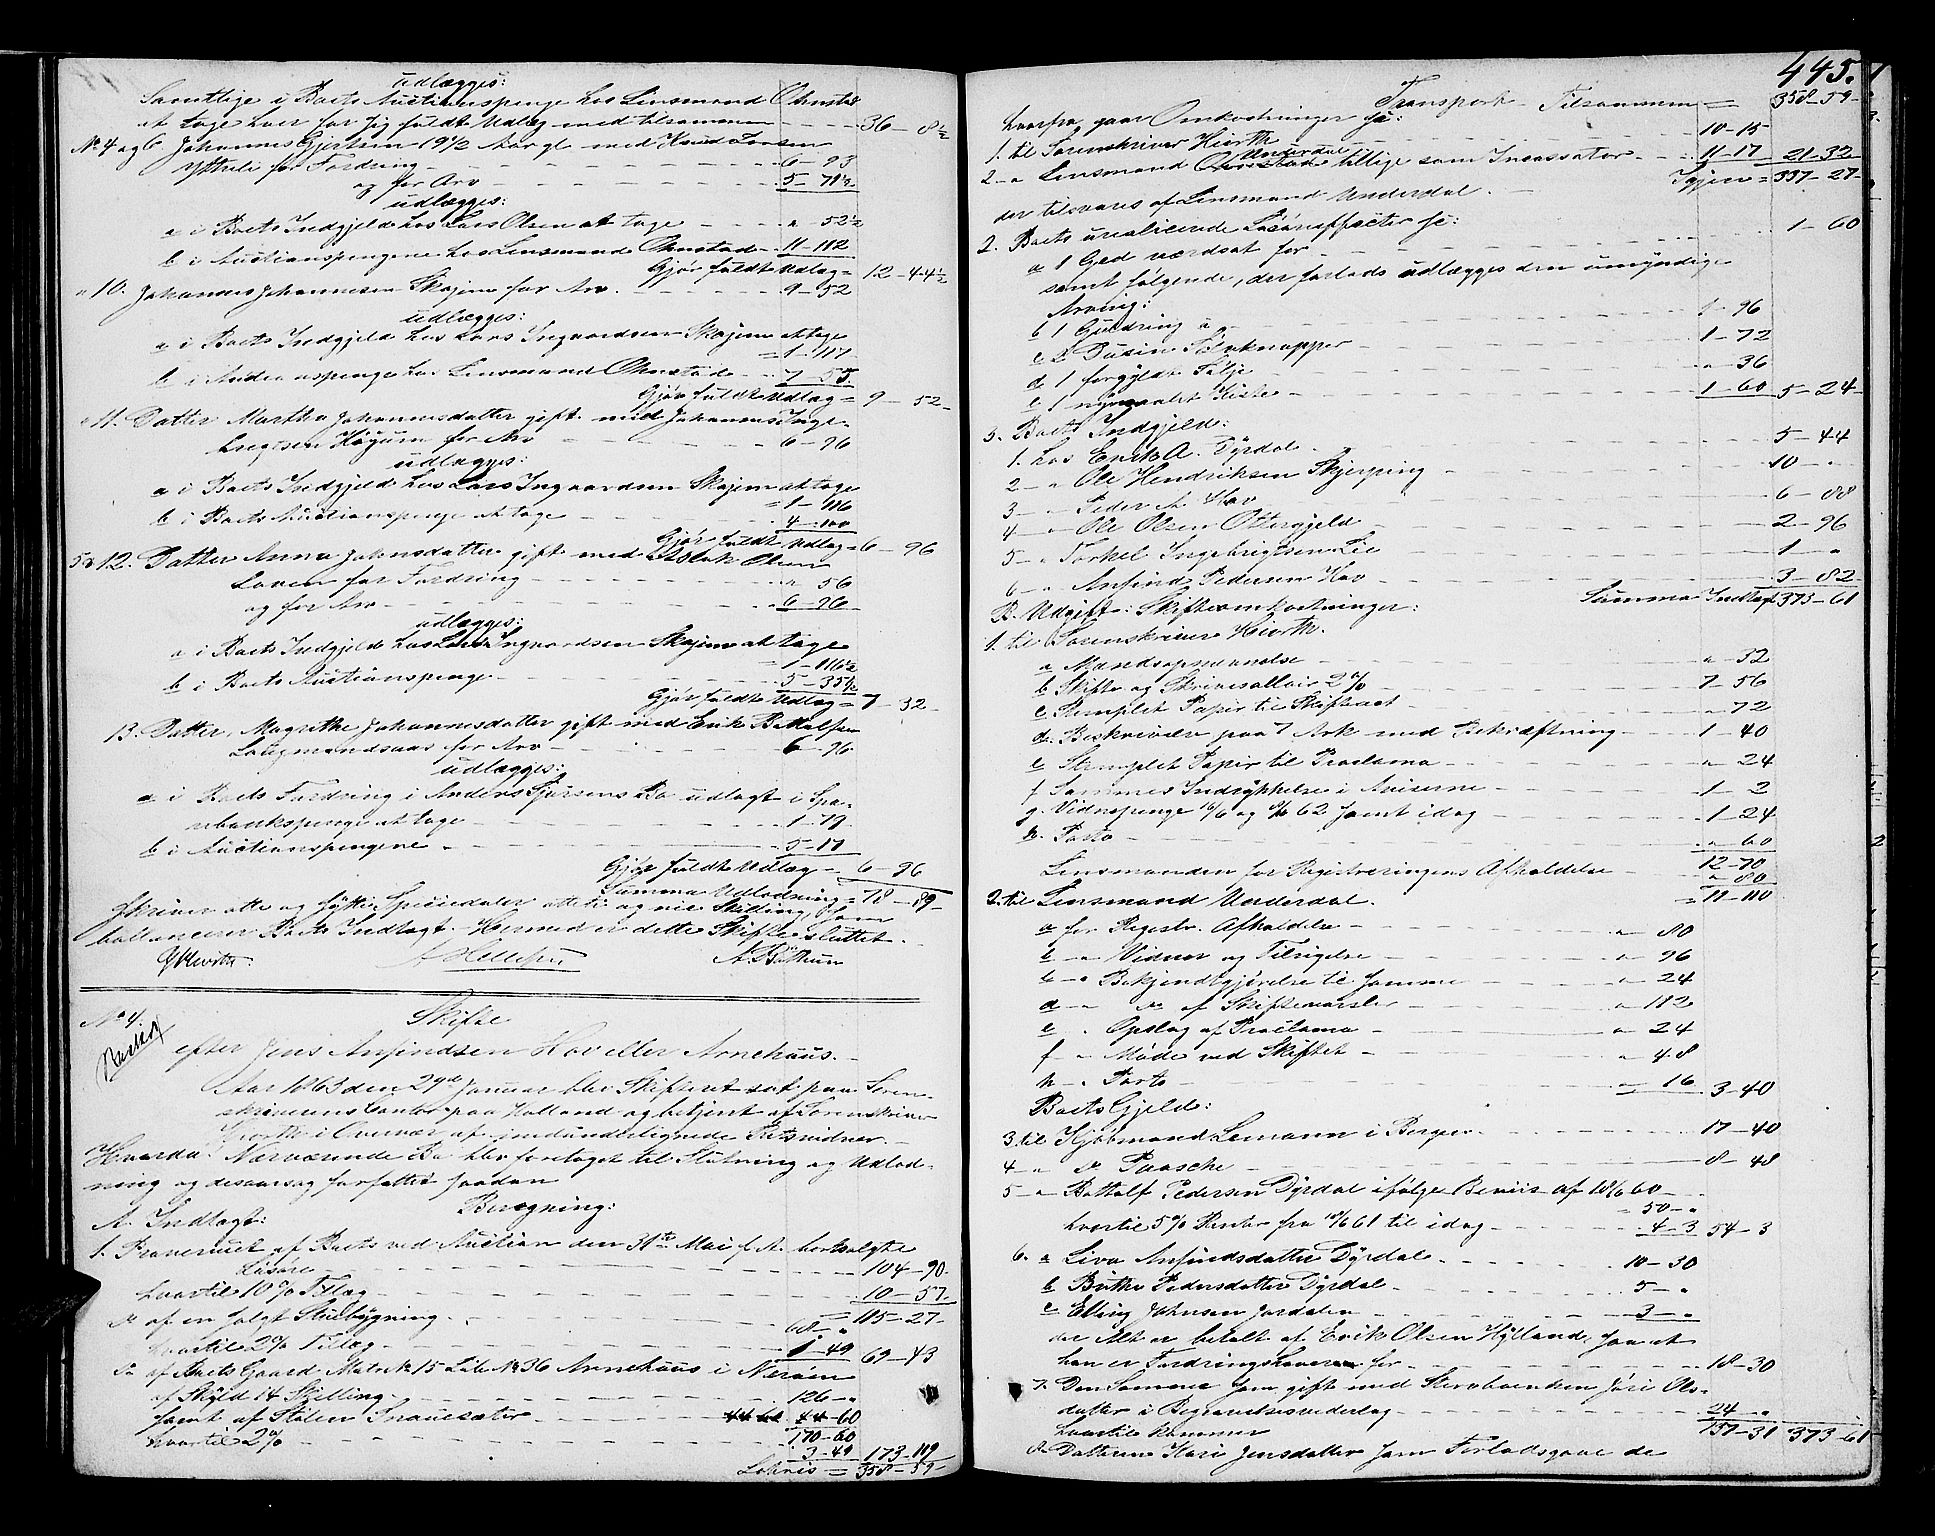 udlægges:
Samtlige i Boets Auctionspenge hos Linsmand Ohnstad
at tage hver for sig fuldt Udlæg med tilsammen 36 - 8½
No 4 og 6 Johannes Gjertsen 19½ Aar gl. med Knud Larsen
Ystheli for Fordring 6 - 93
og for Arv 5 - 71½
udlægges:
a i Boets Indgjeld hos Lars Olsen at tage " - 52½
b i Auctionspengene hos Linsmand Ohnstad 11 - 112
Gjør fuldt Udlæg = 12 - 44½
" 10. Johannes Johannesen Skajem for Arv 9 - 52
udlægges:
a i Boets Indgjeld hos Lars Ingvardsen Skajem at tage
= 1 - 117
b i Auctionspenge hos Linsmand Ohnstad 7 - 55
Gjør fuldt Udlæg = 9 - 52
" 11. Datter Martha Johannesdatter gift med Johannes Inge-
bregtsen Høgum for Arv 6 - 96
udlægges:
a i Boets Indgjeld hos Lars Ingvardsen Skajem at tage
= 1 - 116
b i Boets Auctionspenge at tage 4 - 100
Gjør fuldt Udlæg = 6 - 96
5 & 12. Datter Anna Johansdatter gift med Aslak Olsen
Loven for Fordring " 56
og for Arv 6 - 96
udlægges:
a i Boets Indgjeld hos Lars Ingvardsen Skajem at tage
= 1 - 116½
b i Boets Auctionspenge 5 - 35½
Gjør fuldt Udlæg = 7 - 32
13. Datter, Magrethe Johannesdatter gift med Erik Botolfsen
Laugmandsaas for Arv 6 - 96
udlægges:
a i Boets Fordring i Anders Sjursens Bo udlagt i Spa-
rebankspenge at tage 1 - 79
b i Auctionspengene 5 - 17
Gjør fuldt Udlæg 6 - 96
Summa Udlodning = 78 - 89
Skriver otte og sytti Speciedaler otteti og nie Skilling, som
ballancerer Boets Indtægt. Hermed er dette Skifte sluttet.
Hiorth: A Hellesen A. Bøthun
No 4. Skifte
efter Jens Anfindsen Hov eller Arnehuus.
Aar 1863 den 29de Januar blev Skifteret sat paa Soren-
skriverens Contor paa Holland og betjent af Sorenskriver
Hiorth i Overvær af imedunderlignede Retsvidner.
Hvorda: Nærværende Bo blev foretaget til Slutning og Udlod-
ning og desaarsag forfattet saadan
Beregning:
A. Indtægt:
1. Provenuet af Boets ved Auction den 31te Mai f. A. bortsolgte
Løsøre 104 - 90.
hvortil 10% Tillæg 10 - 57.
= 115 - 27
Do af en solgt Stuebygning 68 - "
hvortil 2% Tillæg 1 - 49 69 - 43
Do af Boets Gaard Matr No 15 Løbe No 36 Arnehuus i Nerøen
af Skyld 14 Skilling 126 - "
samt af Stølen Snauesæter 44 - 60
170 - 60
hvortil 2% 3 - 49 173 - 119
Latris = 358 - 59
445.
Transport Tilsammen = 358 - 59
hvorfra gaar Omkostninger se:
1. til Sorenskriver Hiorth 10 - 15
2 - " Linsmand Underdal tillige som Incassator 11 - 17 21 - 32
Igjen = 337 - 27
der tilsvares af Linsmand Underdal.
2. Boets urealicerede Løsøreeffecter se:
a 1 Ged værdsat for 1 - 60
samt følgende, der forlods udlægges den umyndige
Arving:
b 1 Guldring a 1 - 96
c 2 Dusin Sølvknapper 1 - 72
d 1 forgyldt Sølje " 36
e 1 nymaalt Kiste 1 - 60 5 - 24
3. Boets Indgjeld:
1. hos Erik A. Dyrdal 5 - 44
2 - " Ole Hendriksen Skjerping 10 - "
3 - " Peder A Hov 6 - 88
4 - " Ole Olsen Ottergjeld 2 - 96
5 - " Torkel Ingebrigtsen Lie 1 - "
6 - " Anfind Pedersen Hov 3 - 82
Summa Indtægt 373 - 61
B. Udgift: Skifteomkostninger:
1. til Sorenskriver Hiorth.
a Mandsopnævnelse " - 32
b Skifte og Skriversallair 2% 7 - 56
c Stemplet Papir til Skiftbrevet " - 72
d. Beskrivelse paa 7 Ark med Bekræftning 1 - 40
e Stemplet Papir til Proclama " 24
f Sammes Indrykkelse i Aviserne 1 - 2
g. Vidnepenge 10/6 og 62 samt idag 1 - 24
h. Porto " 60
12 - 70
Linsmanden for Registreringens Afholdelse " 80
= 11 - 110
2. til Linsmand Underdal.
a for Registr. Afholdelse " 80
b - " Vidner og Tilsigelse " 96
c - " Bekjendtgjørelse til samme " 24
d - " Do af Skiftevarsler " 112
e " Opslag af Proclama " 24
f " Møde ved Skiftet " 48
h - " Porto " 16 3 - 40
Boets Gjeld:
3. til Kjøbmand Lemann i Bergen 17 - 40
4 - " Do Paasche 8 - 48
5 - " Bottolf Pedersen Dyrdal ifølge Beviis af 60
= 50 - "
hvortil 5% Renter fra 61 til idag 4 - 3 54 - 3
6. a Liva Anfindsdatter Dyrdal 10 - 30
b Brithe Pedersdatter Dyrdal 5 - "
c Elling Johnsen Jordalen 3 - "
der Alt er betalt af Erik Olsen Hylland, saa at
han er Fordringshaver for 18 - 30
7. Den Samme som gift med Stervboenken Jøri Ols-
datter i Begravelsesvederlag 24 - "
157 - 31 373 - 61
hvortil kommer
8. Datteren Kari Jensdatter som Forlodsgave de